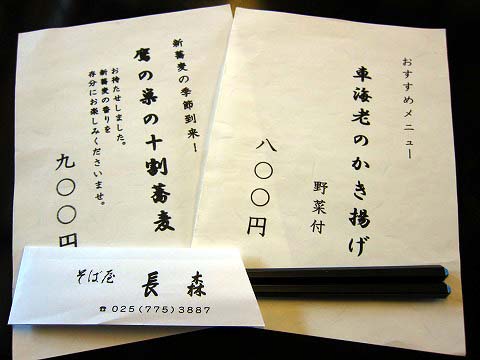 おすすめメニュー
車海老のかき揚げ
野菜付
八〇〇円
新蕎麦の季節到来！
鷹の巣の十割蕎麦
お待たせしました。
新蕎麦の香りを
存分にお楽しみくださいませ。
九〇〇円
そば屋
長森
☎025(775)3887